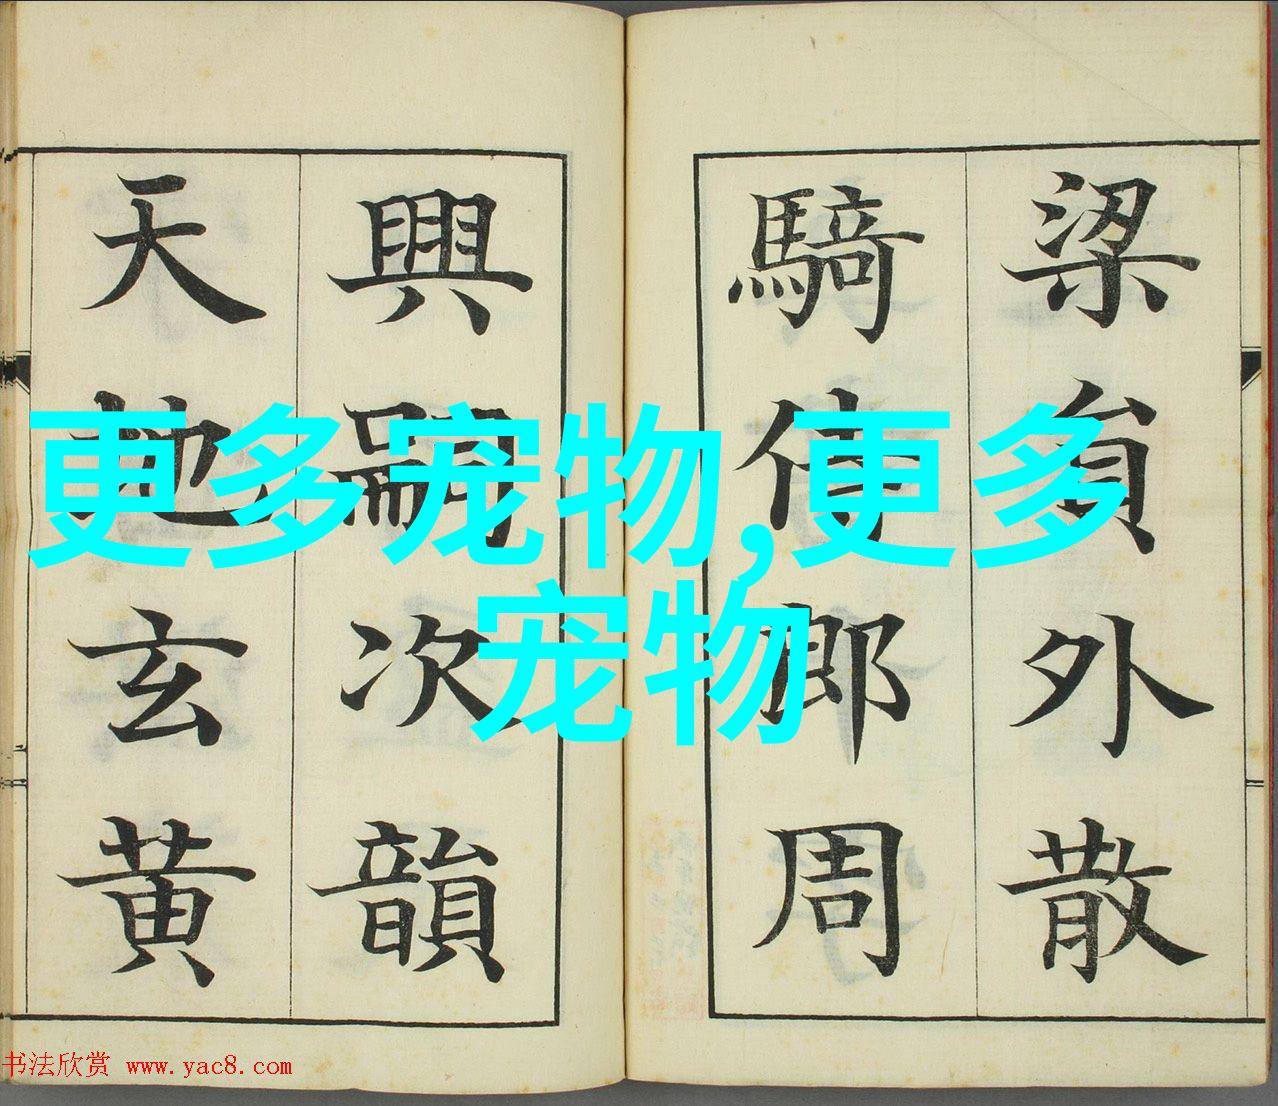 梁貟外散
騎侍郎周
興嗣次韻
天地玄黄
更多宠物,更多
宠物
书法欣赏 www.yac8.com